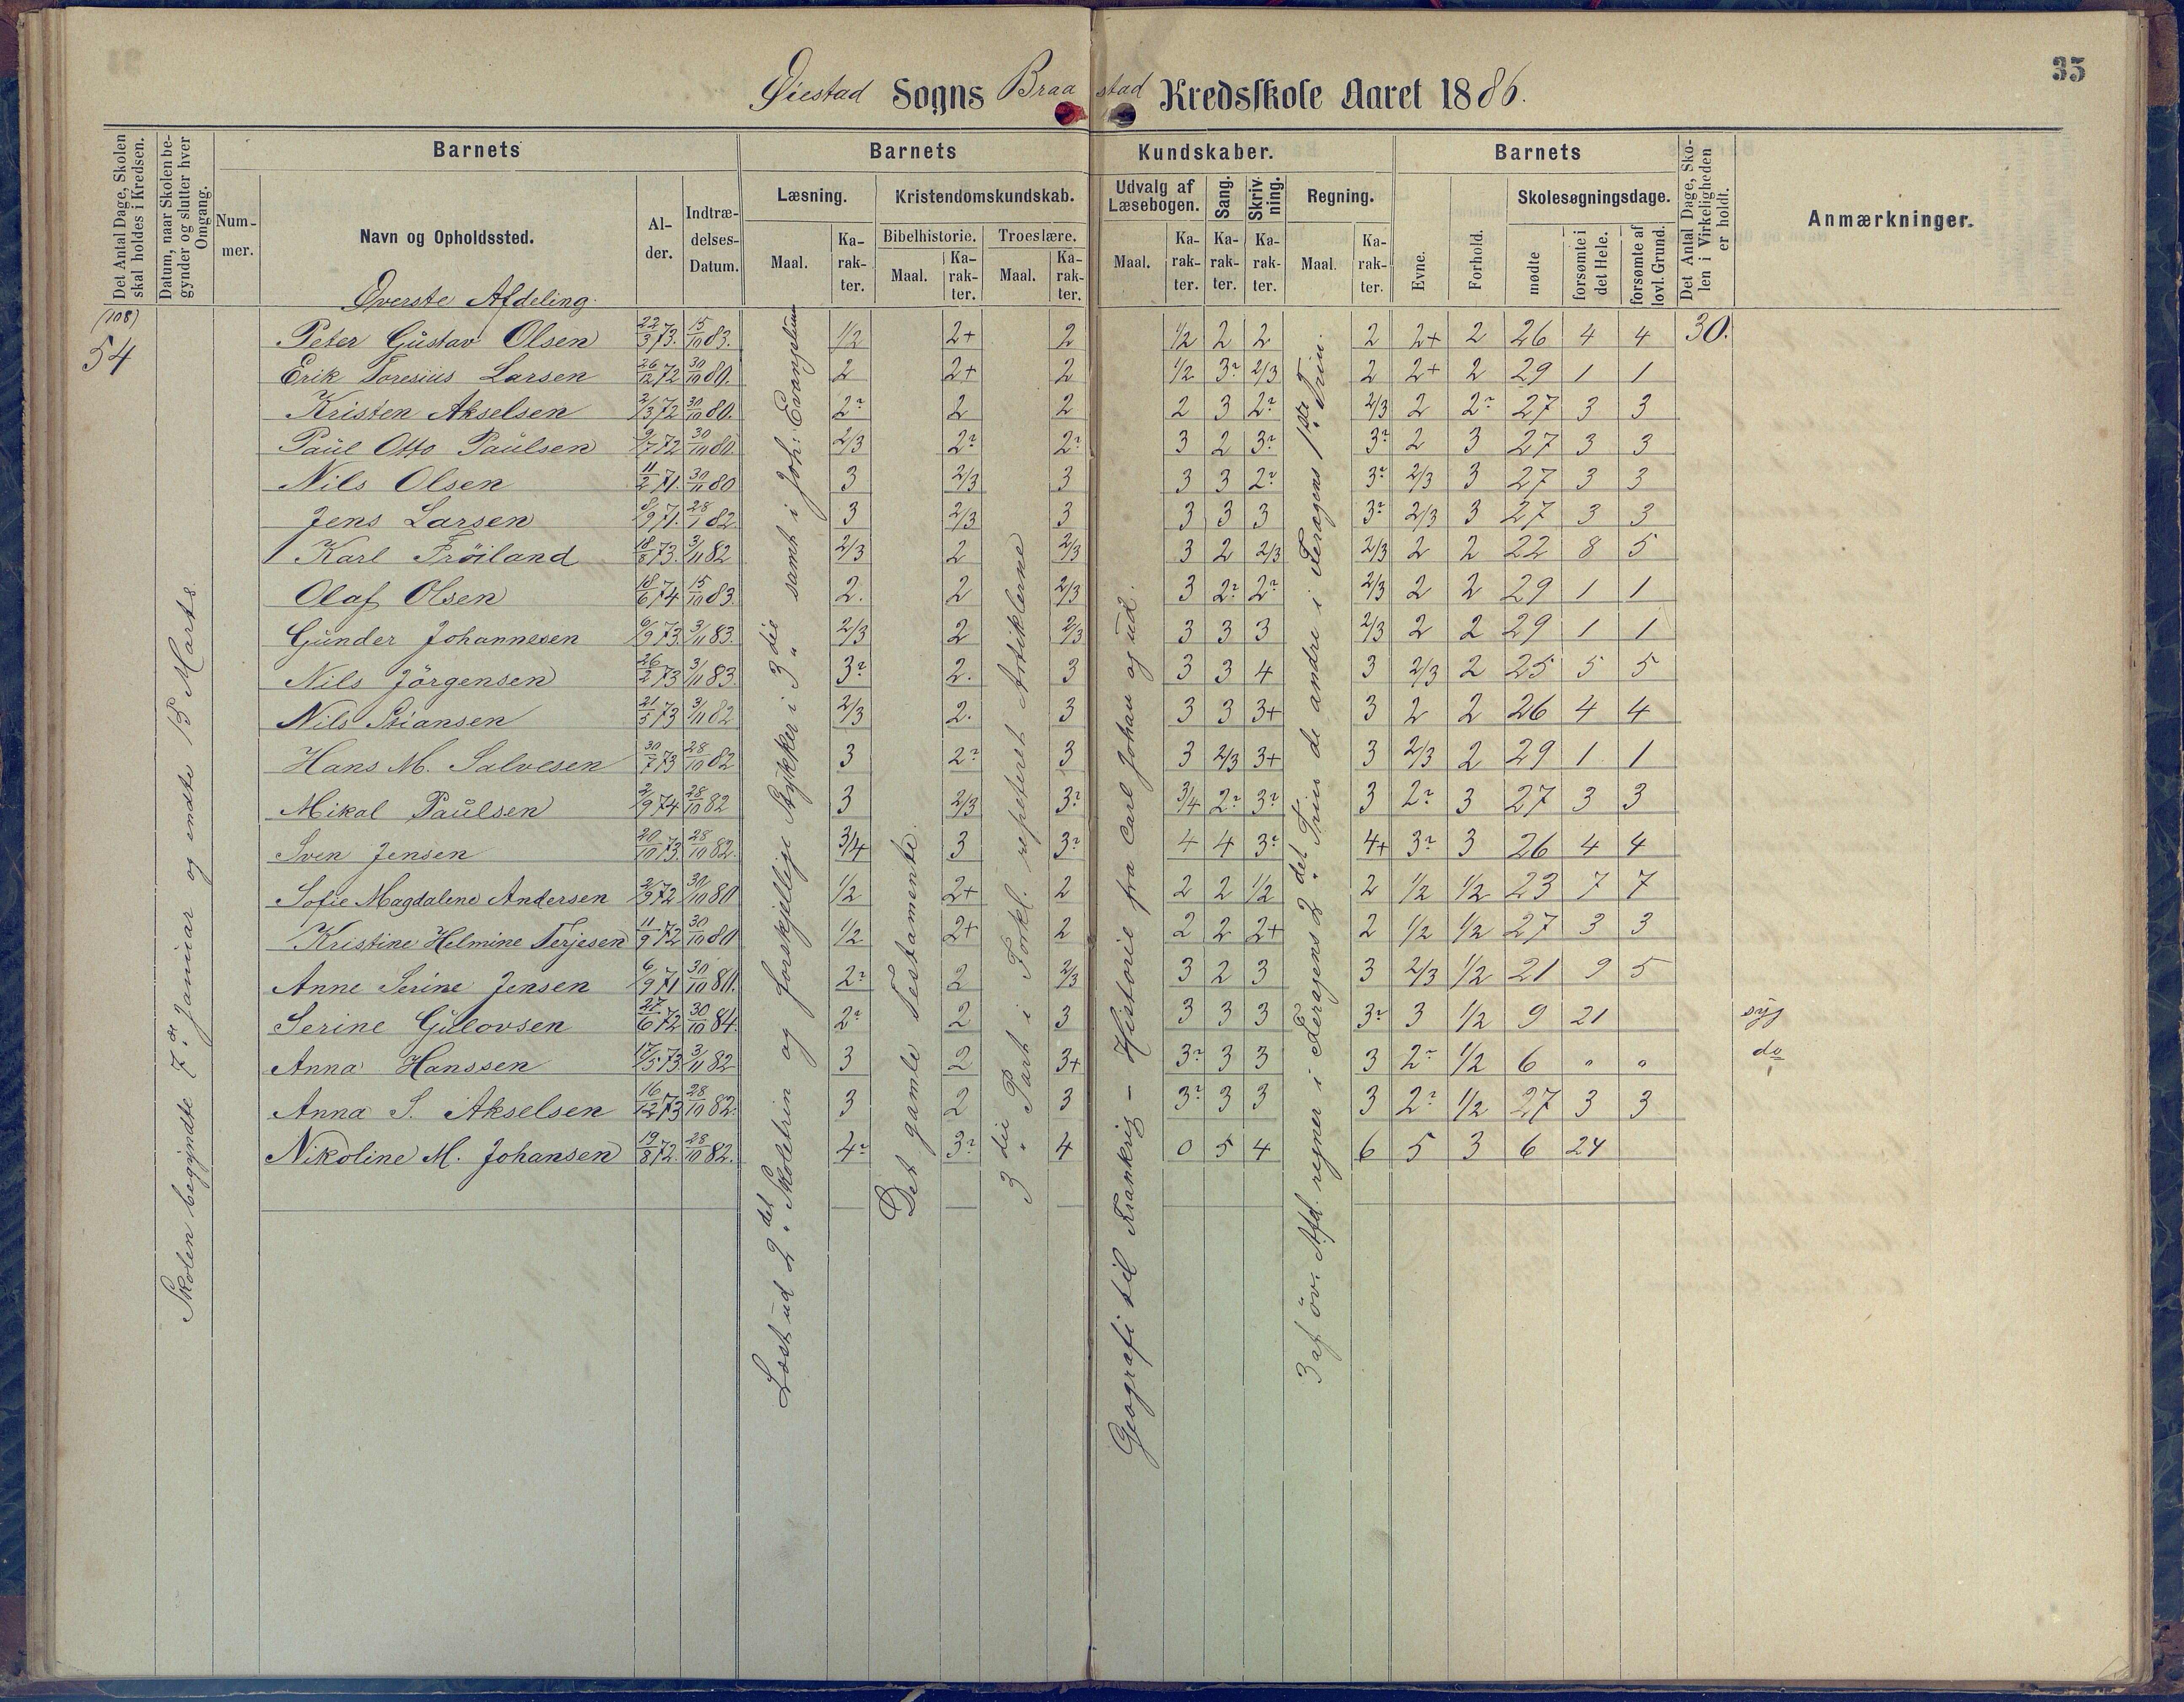 35
Øiestad Sogns Braastad Kredsskole Aaret 1886.
Det Antal Dage, Skolen skal holdes i Kredsen.
Datum, naar Skolen begynder og slutter hver Omgang.
Nummer.
Barnets
Navn og Opholdssted.
Alder.
Indtrædelses-Datum.
Barnets Kundskaber.
Læsning.
Maal.
Karakter.
Kristendomskundskab.
Bibelhistorie.
Maal.
Karakter.
Troeslære.
Maal.
Karakter.
Udvalg af Læsebogen.
Maal.
Karakter.
Sang.
Karakter.
Skrivning.
Karakter.
Regning.
Maal.
Karakter.
Barnets
Evne.
Forhold.
Skolesøgningsdage.
mødte
forsømte i det Hele.
forsømte af lovl. Grund.
Det Antal Dage, Skolen i Virkeligheden er holdt.
Anmærkninger.
Øverste Afdeling.
(108)
54
Skolen begyndte 7de Januar og endte 15 Marts
Læst ud 2det Skoletrin og forskjellige Stykker i 3die samt i Joh: Evangelium
Det gamle Testamente.
3die Part i Forkl. repeteret Artiklerne
Geografi til Frankrig – Historie fra Carl Johan og ud.
3 af öv. Afd. regner i Æeragens 2det Trin de andre i Æeragens 1ste Trin.
Peter Gustav Olsen 22/3 73. 15/10 83. 1/2 2+ 2 1/2 2 2 2 2+ 2 26 4 4 30.
Erik Toresius Larsen 26/12 72 30/10 80. 2 2+ 2 1/2 3? 2/3 2 2+ 2 29 1 1
Kristen Akselsen 2/3 72 30/10 80. 2? 2 2 2 3 2? 2/3 2 2? 27 3 3
Paul Otto Paulsen 9/7 72 30/10 80. 2/3 2? 2? 3 2 3? 3? 2 3 27 3 3
Nils Olsen 11/2 71. 30/11 80 3 2/3 3 3 3 2? 3? 2/3 3 27 3 3
Jens Larsen 8/9 71. 28/1 82 3 2/3 3 3 3 3 3? 2/3 3 27 3 3
Karl Fröiland 18/8 73. 3/11 82 2/3 2 2/3 3 2 2/3 2/3 2 2 22 8 5
Olaf Olsen 18/6 74 15/10 83. 2. 2 2/3 3 2? 2? 2/3 2 2 29 1 1
Gunder Johannesen 6/9 73. 3/11 83. 2/3 2 2/3 3 3 3 2/3 2 2 29 1 1
Nils Jörgensen 26/2 73 3/11 83. 3? 2. 3 3 3 4 3 2/3 2 25 5 5
Nils Stiansen 21/5 73 3/11 82 2/3 2. 3 3 3 3+ 3 2 2 26 4 4
Hans M. Salvesen 30/7 73 28/10 82 3 2? 3 3 2/3 3+ 3 2/3 2 29 1 1
Mikal Paulsen 2/9 74 28/10 82 3 2/3 3? 3/4 2? 3? 3 2? 3 27 3 3
Sven Jensen 20/10 73 28/10 82. 3/4 3 3? 4 4 3? 4+ 3? 3 26 4 4
Sofie Magdalene Andersen 2/9 72 30/10 80 1/2 2+ 2 2 2 1/2 2 1/2 1/2 23 7 7
Kristine Helmine Terjesen 11/9 72 30/10 80 1/2 2+ 2 2 2 2+ 2 1/2 1/2 27 3 3
Anne Serine Jensen 6/9 71 30/10 80. 2? 2 2/3 3 2 3 3 2/3 1/2 21 9 5
Serine Gulovsen 27/6 72 30/10 84. 2? 2 3 3 3 3 3? 3 1/2 9 21 syg
Anna Hanssen 17/5 73 3/11 82 3 2 3+ 3? 3 3 3 2? 1/2 6 " " do
Anna S. Akselsen 16/12 73 28/10 82. 3 2 3 3? 3 3 3 2? 1/2 27 3 3
Nikoline M. Johansen 19/8 72. 28/10 82. 4? 3? 4 0 5 4 6 5 3 6 24